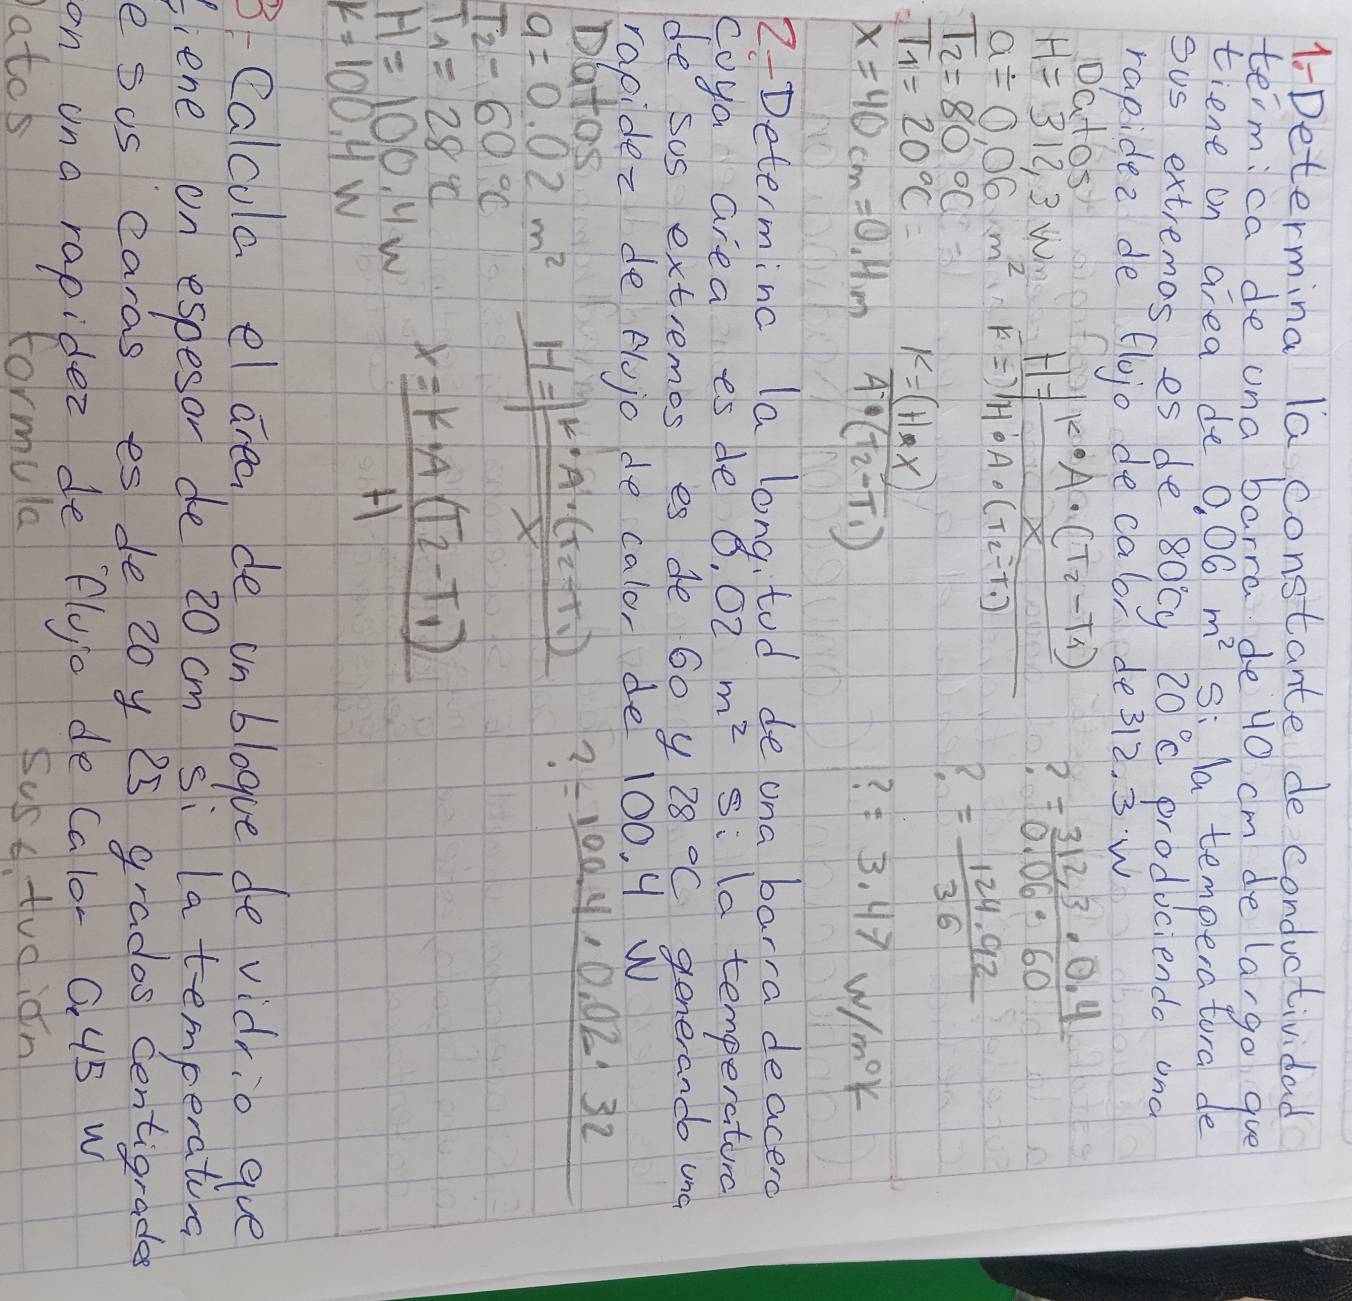 1.- Determina la constante de conductividad
térmica de una barra de 40 cm de largo que
tiene un área de 0,06 m² Si la temperatura de
sus extremos es de 80°C y 20°C produciendo una
rapidez de flujo de calor de 312.3 W
Datos
H = 312,3 W
a = 0,06 m²
T2 = 80 °C =
T1 = 20 °C =
X = 40 cm = 0.4 m
H = K • A • (T2 - T1)
X
K = H • A • (T2 - T1)
K = (H • X)
A • (T2 - T1)
? = 312,3 • 0.4
0.06 • 60
? = 124,92
36
? = 3.47 W/m°K
2.- Determina la longitud de una barra de acero
cuya área es de 0,02 m² si la temperatura
de sus extremos es de 60 y 28 °C generando una
rapidez de flujo de calor de 100.4 W
Datos
a = 0.02 m²
T2 - 60 °C
T1 = 28 °C
H = 100.4 W
K = 100,4 W
H = K • A • (T2 - T1)
X
X = K • A (T2 - T1)
H
? = 100,4 • 0.02 • 32
3.- Calcula el área de un bloque de vidrio que
tiene un espesor de 20 cm si la temperatura
e sus caras es de 20 y 25 grados Centigrados
on una rapidez de flujo de calor 45 W
atos formula sustitución